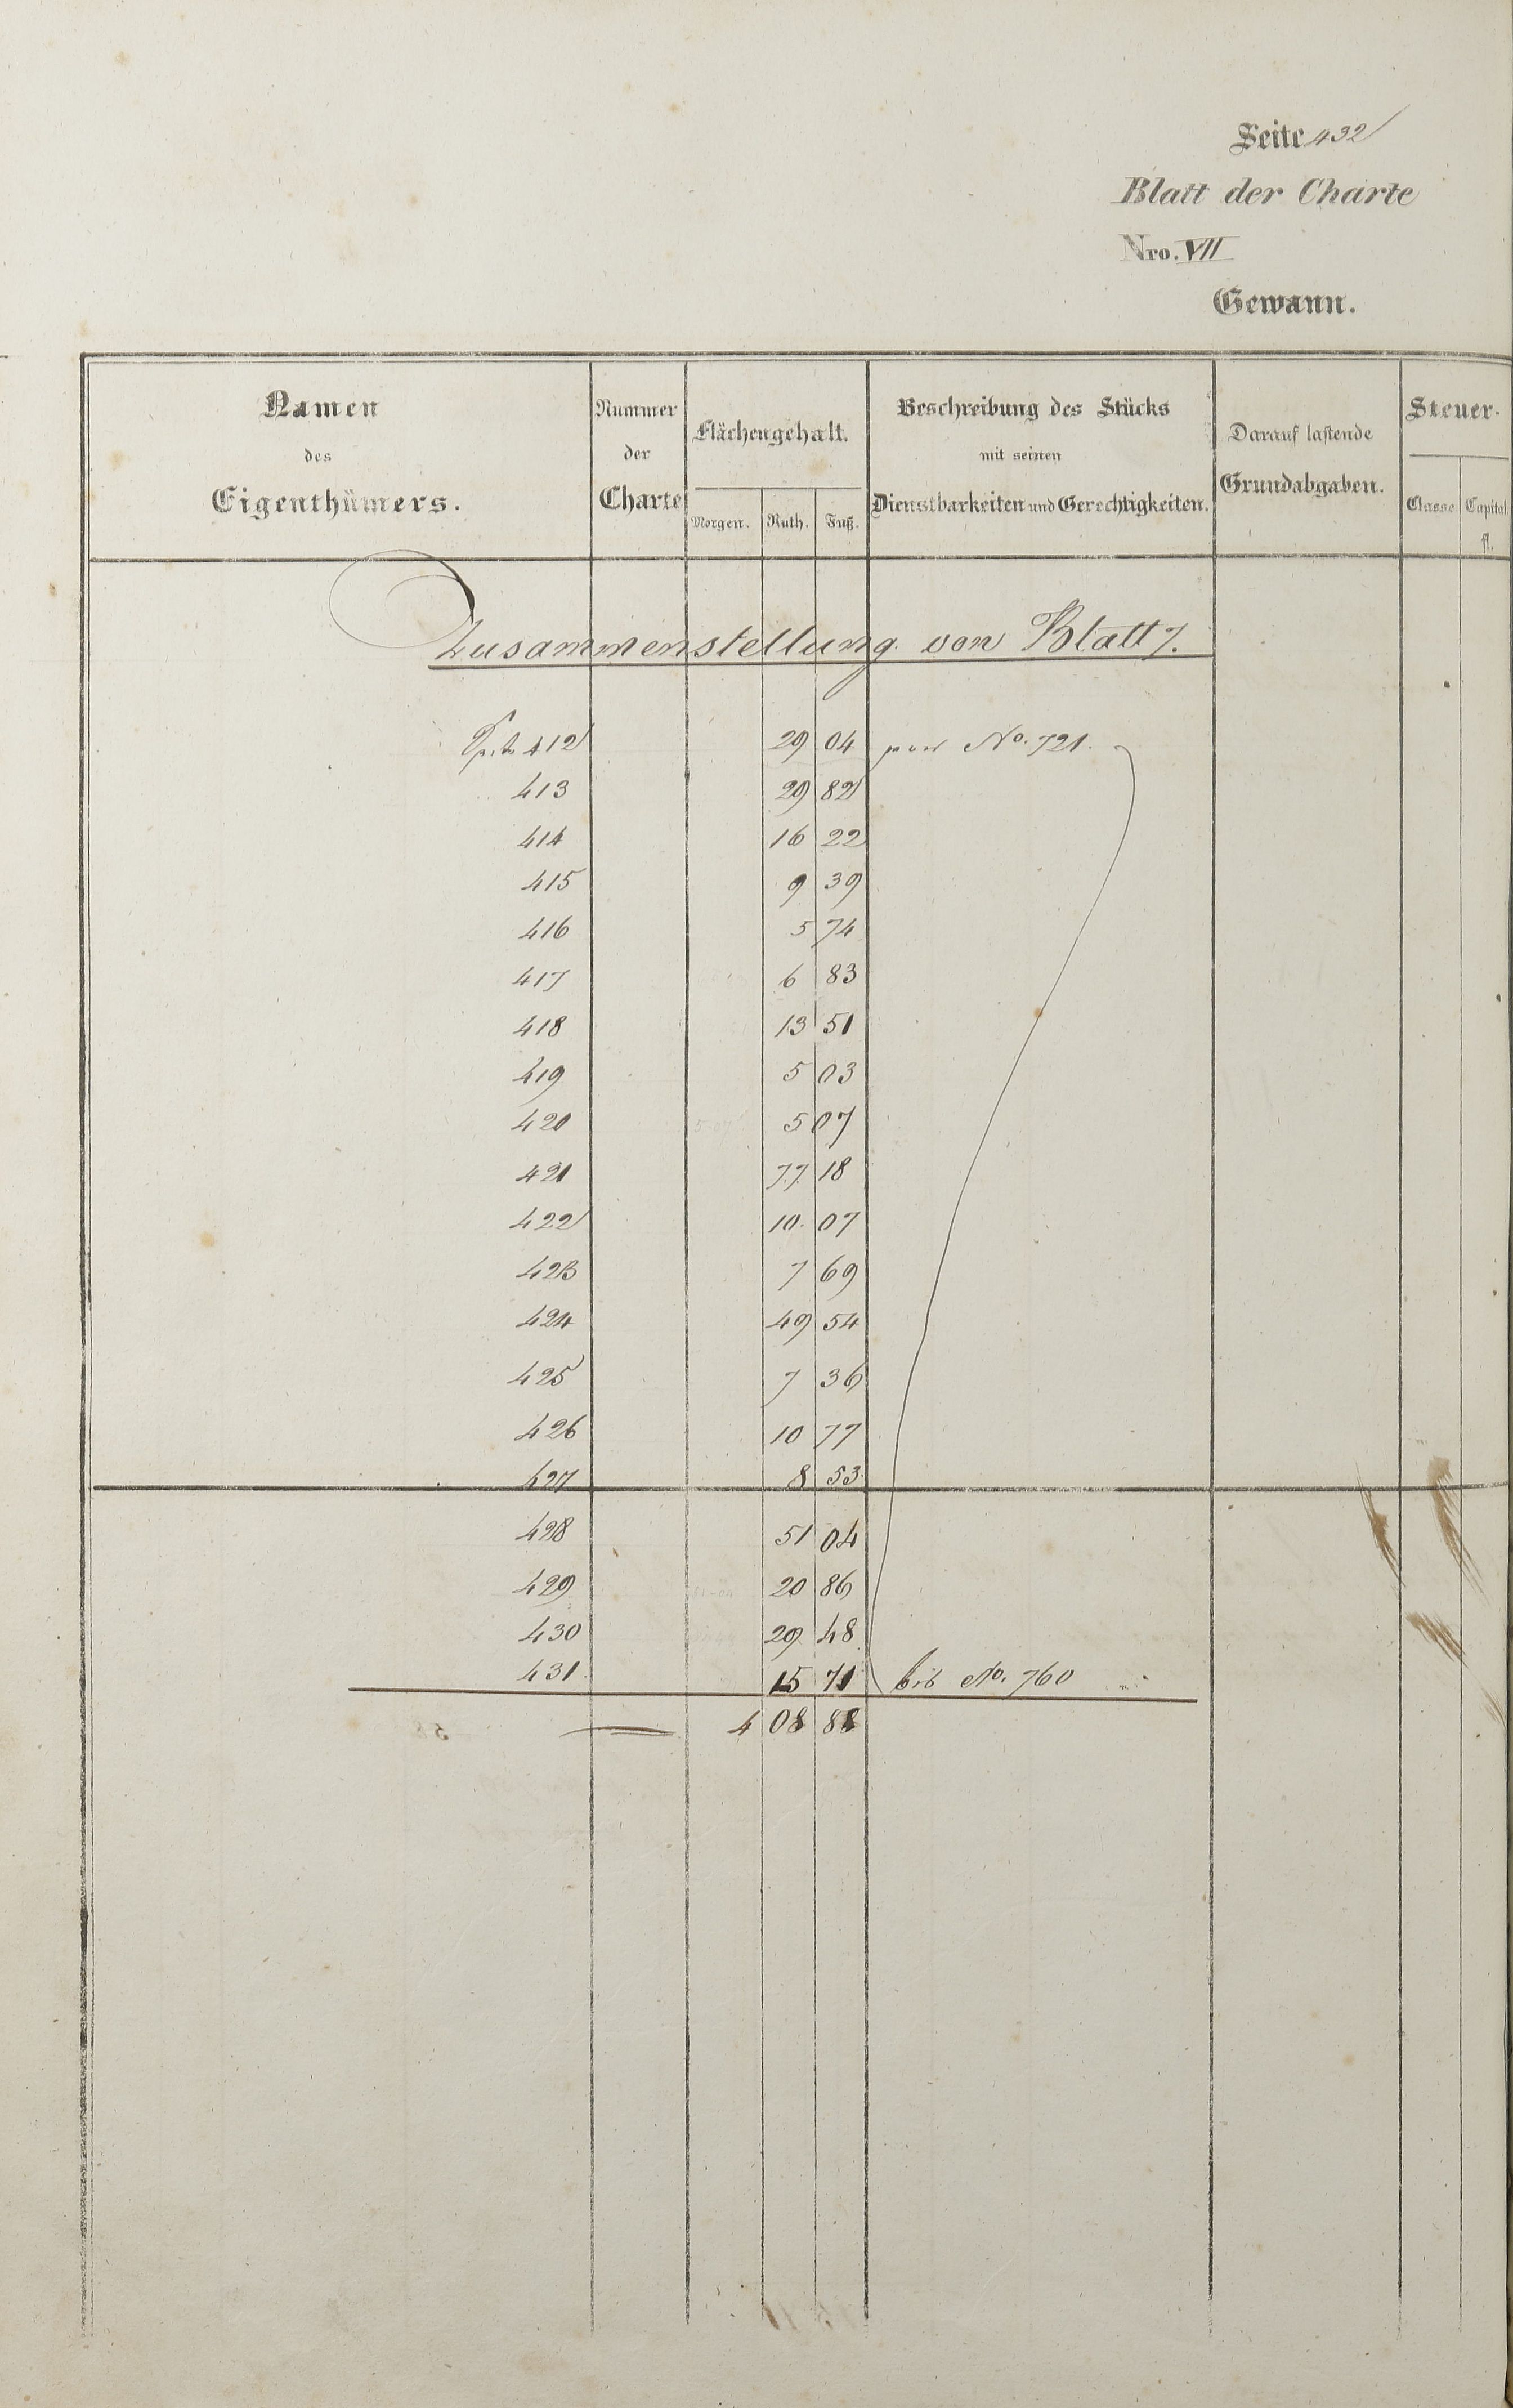 Seite 432
Blatt der Charte
Nro. VII
Gewann.
Namen des Eigenthümers.
Nummer der Charte
Flächengehalt.
Morgen. Ruth. Fuß.
Beschreibung des Stücks mit seinen Dienstbarkeiten und Gerechtigkeiten.
Darauf lastende Grundabgaben.
Steuer-
Classe Capital fl.
Zusammenstellung von Blatt 7.
412 29 04 No. 721.
413 29 82
414 16 22
415 9 39
416 5 74
417 6 83
418 13 51
419 5 03
420 5 07
421 77 18
422 10 07
423 7 69
424 49 54
425 7 36
426 10 77
427 8 53
428 51 04
429 20 86
430 29 48
431 15 71 bis No. 760
4 08 88